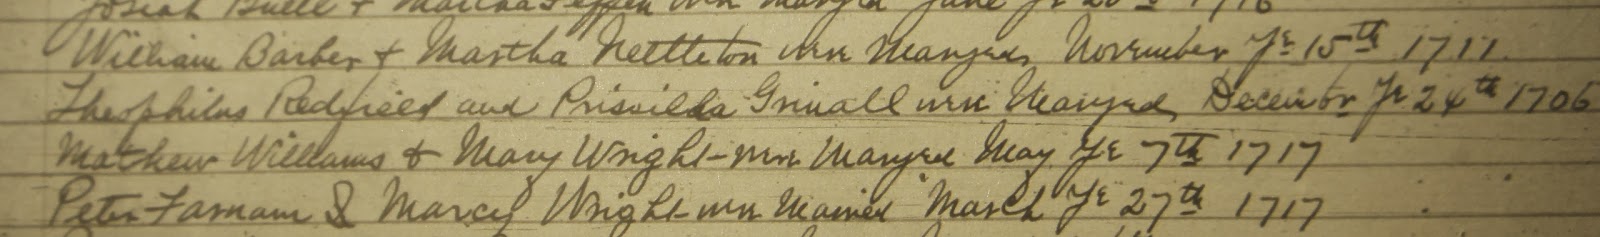 Josiah Buell & Martha were Maryed June ye 20th 1716
William Barber & Martha Nettleton were Maryed November Ye 15th 1717.
Theophilus Redfield and Priscilla Grinall were Maryed December Ye 24th 1706
Mathew Williams & Mary Wright were Maryed May Ye 7th 1717
Peter Farnam & Marcy Wright were Maried March Ye 27th 1717